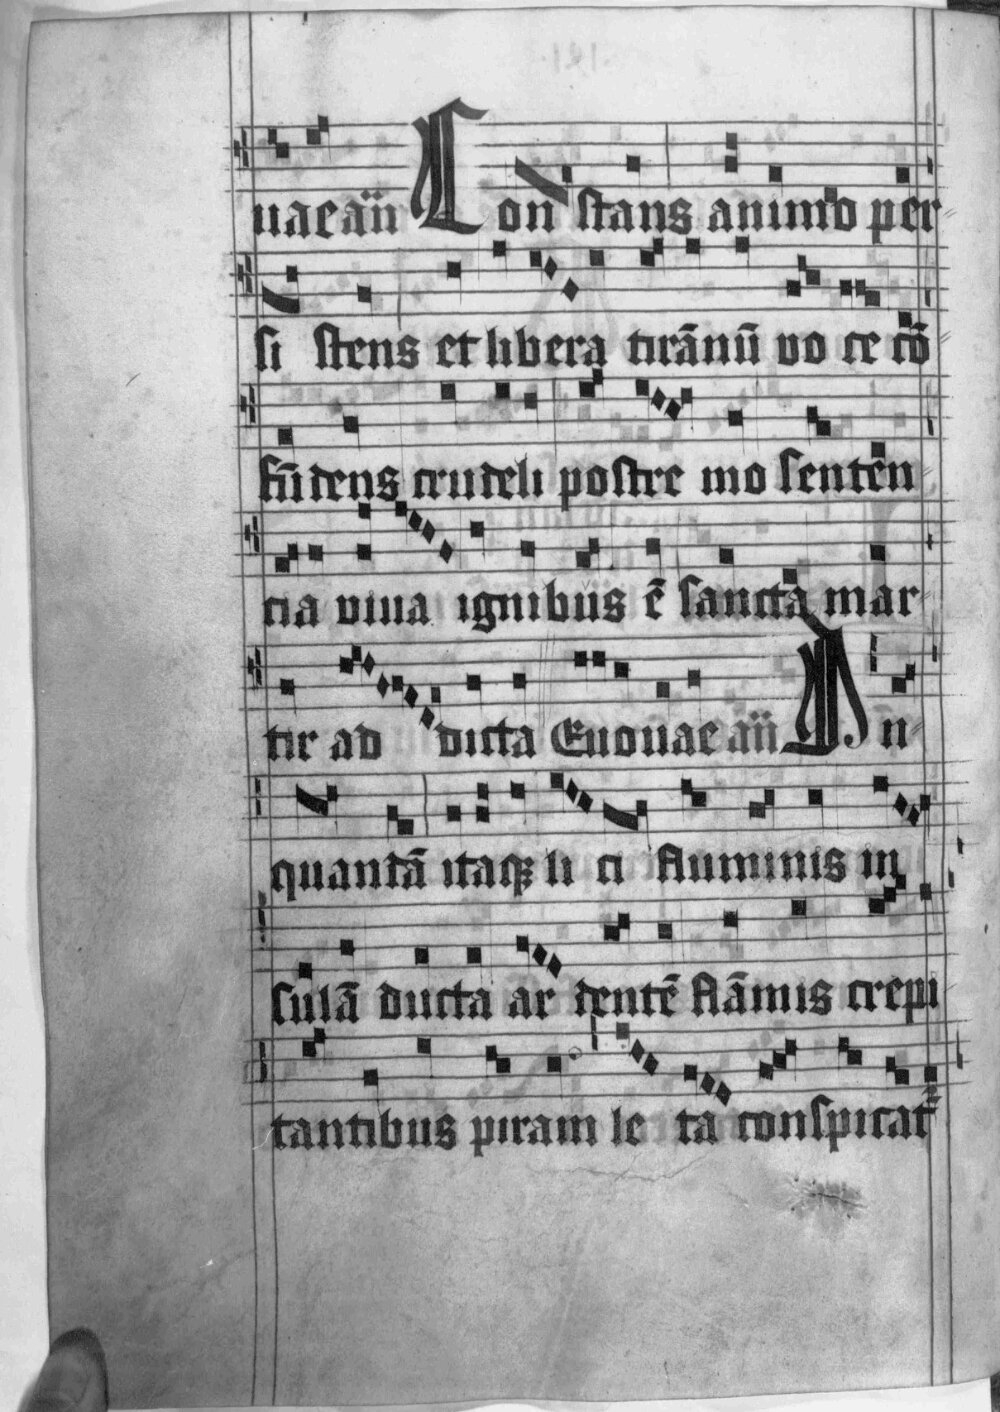 uaeañ Con stans animo per
si stens et libera tirānū vo ce cō
fūdens crudeli postre mo senten
cia viua ignibus ē sancta mar
tir ad dicta Euouae añ In
quandā itaqȝ li ci fluminis in
sulā ducta ar dentē flāmis crepi
tantibus piram le ta conspicat᷑